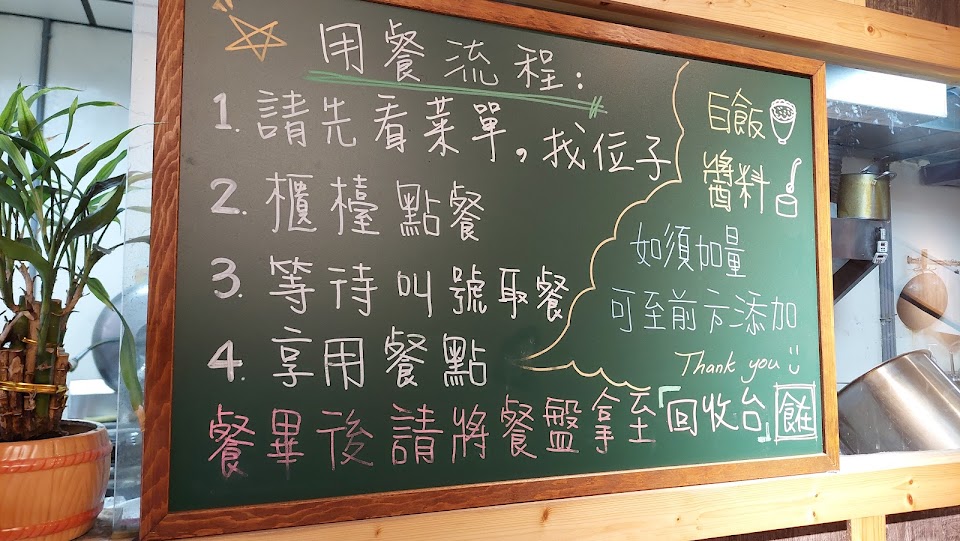 用餐流程：
1. 請先看菜單，找位子
2. 櫃檯點餐
3. 等待叫號取餐
4. 享用餐點
白飯
醬料
如須加量
可至前方添加
Thank you
餐畢後請將餐盤拿至「回收台」